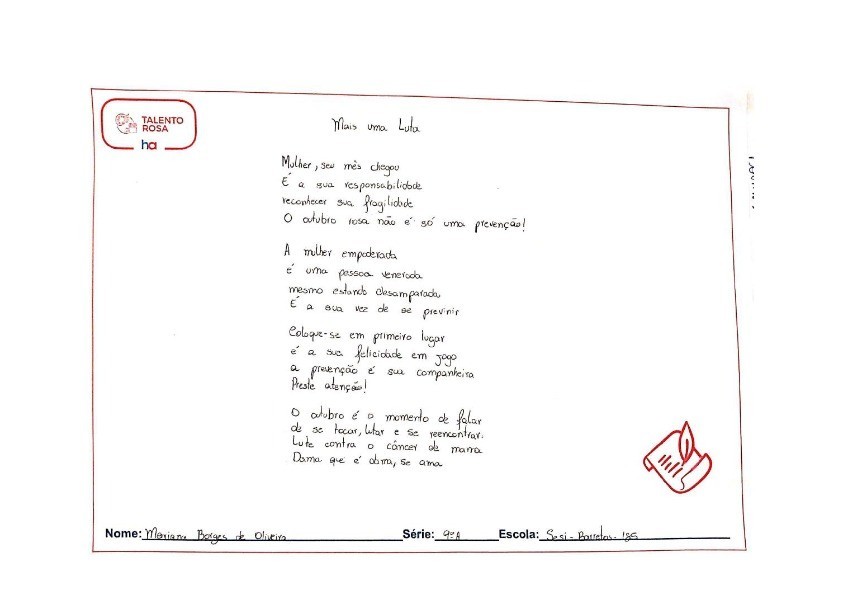 TALENTO
ROSA
ha
Mais uma Luta
Mulher, seu mês chegou
É a sua responsabilidade
reconhecer sua fragilidade
O outubro rosa não é só uma prevenção!
A mulher empoderada
é uma pessoa venerada
mesmo estando desamparada,
É a sua vez de se previnir
Coloque-se em primeiro lugar
é a sua felicidade em jogo
a prevenção é sua companheira
Preste atenção!
O outubro é o momento de falar
de se tocar, lutar e se reencontrar.
Lute contra o câncer de mama
Dama que é dama, se ama
Nome: Mariana Borges de Oliveira Série: 9º A Escola: Sesi - Barretos - 185